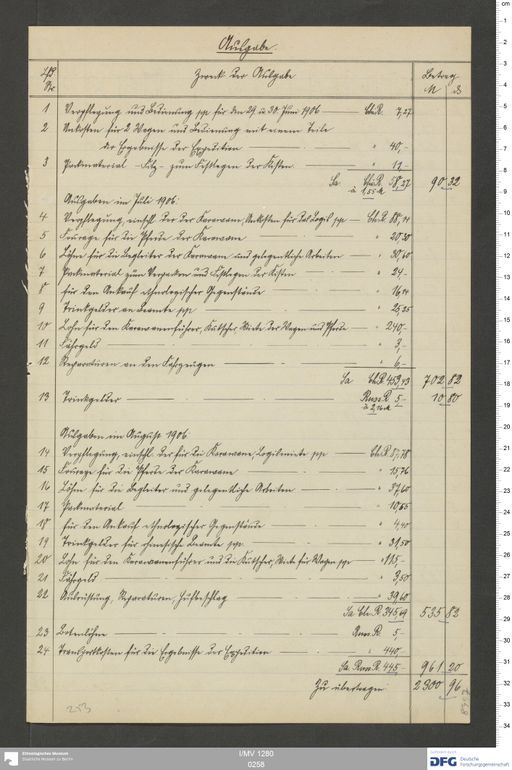 Ausgabe.
Lfd. Nr. Zweck der Ausgabe Betrag M ₰
1 Verpflegung und Bedienung pp für den 29. u 30. Juni 1906 — Ch.R. 7,27
2 Unkosten für 2 Wagen und Bedienung mit einem Teile
der Ergebnisse der Expedition — " 40,-
3 Packmaterial - Filz - zum Festlegen der Kisten — " 11 -
Sa Ch.R. 58,27 90 32
à 1,55 M
Ausgaben im Juli 1906:
4 Verpflegung, einschl. der der Karawane, Unkosten für das Logis pp — Ch.R. 88,
5 Fourage für die Pferde der Karawane — "
6 Löhne für die Begleiter der Karawane und gelegentliche Arbeiten — " 30,60
7 Packmaterial zum Verpacken und Festlegen der Kisten — " 24 -
8 für den Ankauf ethnologischer Gegenstände — " 16,
9 Trinkgelder an Beamte pp — " 25,25
10 Lohn für den Karawanenführer, Kutscher, Miete der Wagen und Pferde — " 240,-
11 Fährgeld — " 3,-
12 Reparaturen an den Fahrzeugen — " 6,-
Sa Ch.R. 453,43 702 82
13 Trinkgelder — Russ.R. 5 - 10 80
à 2,16 M
Ausgaben im August 1906
14 Verpflegung, einschl. der für die Karawane, Logismiete pp — Ch.R. 51,78
15 Fourage für die Pferde der Karawane — " 15,76
16 Löhne für die Begleiter und gelegentliche Arbeiten — " 87,60
17 Packmaterial — " 10,65
18 für den Ankauf ethnologischer Gegenstände — " 4,40
19 Trinkgelder für chinesische Beamte pp. — " 31,50
20 Lohn für den Karawanenführer und die Kutscher, Miete für Wagen pp — " 115,-
21 Fährgeld — " 3,50
22 Ausrüstung, Reparaturen, Hufbeschlag — "
Sa Ch.R. 345,69 535 82
23 Botenlöhne — Russ.R. 5,
24 Transportkosten für die Ergebnisse der Expedition — " 440 -
Sa. Russ.R. 445 - 961 20
Zu übertragen 2300 96
253
Ethnologisches Museum
Staatliche Museen zu Berlin
I/MV 1280
0258
DFG Deutsche Forschungsgemeinschaft
cm
1
2
3
4
5
6
7
8
9
10
11
12
13
14
15
16
17
18
19
20
21
22
23
24
25
26
27
28
29
30
31
32
33
34